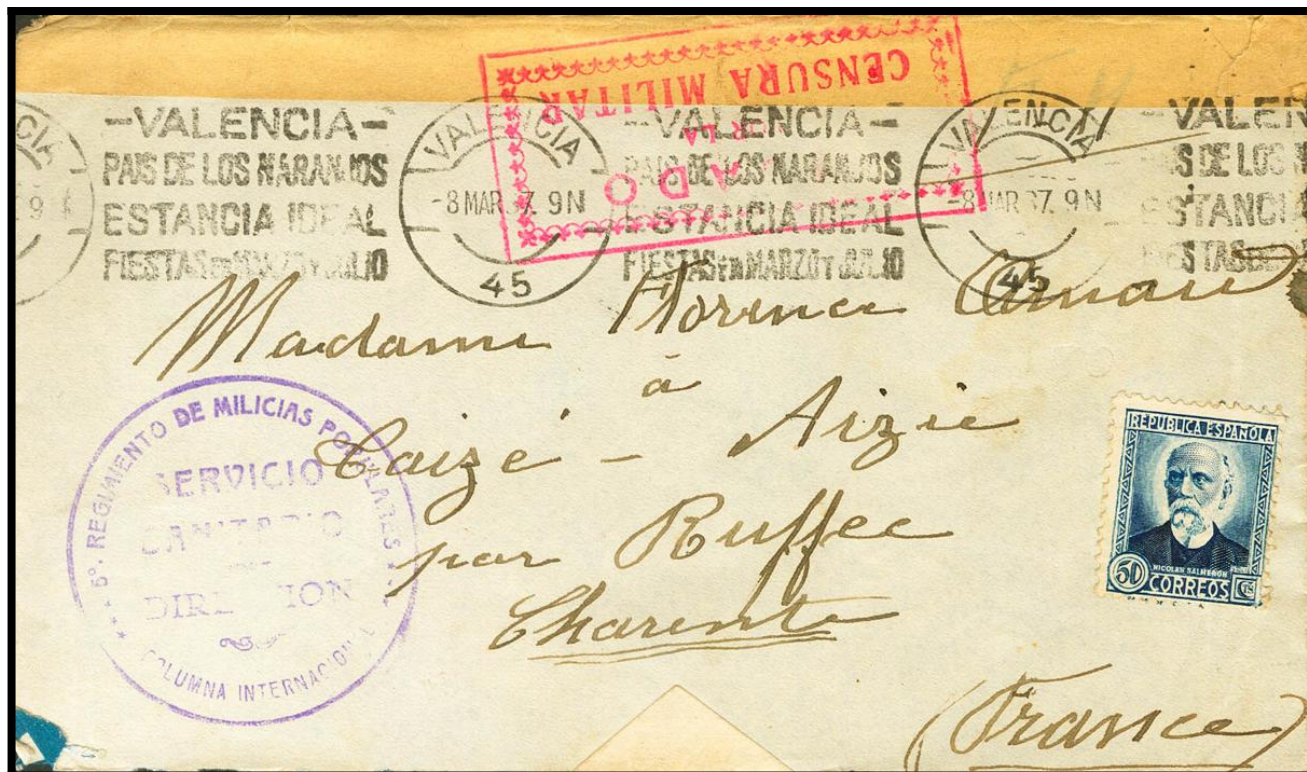 CENSURA MILITAR
POR LA
ADO
VALENCIA
-VALENCIA-
PAIS DE LOS NARANJOS
ESTANCIA IDEAL
FIESTAS EN MARZO Y JULIO
VALENCIA
-8 MAR 37. 9N
45
-VALENCIA-
PAIS DE LOS NARANJOS
ESTANCIA IDEAL
FIESTAS EN MARZO Y JULIO
VALENCIA
-8 MAR 37. 9N
45
-VALEN
DE LOS
ESTANCIA
Madame Florence
à
Caizé - Aizie
par Ruffec
Charente
(France)
5º. REGIMIENTO DE MILICIAS POPULARES
SERVICIO
SANITARIO
DIRE ION
COLUMNA INTERNACION L
REPUBLICA ESPAÑOLA
NICOLAS SALMERON
50 CORREOS CTS